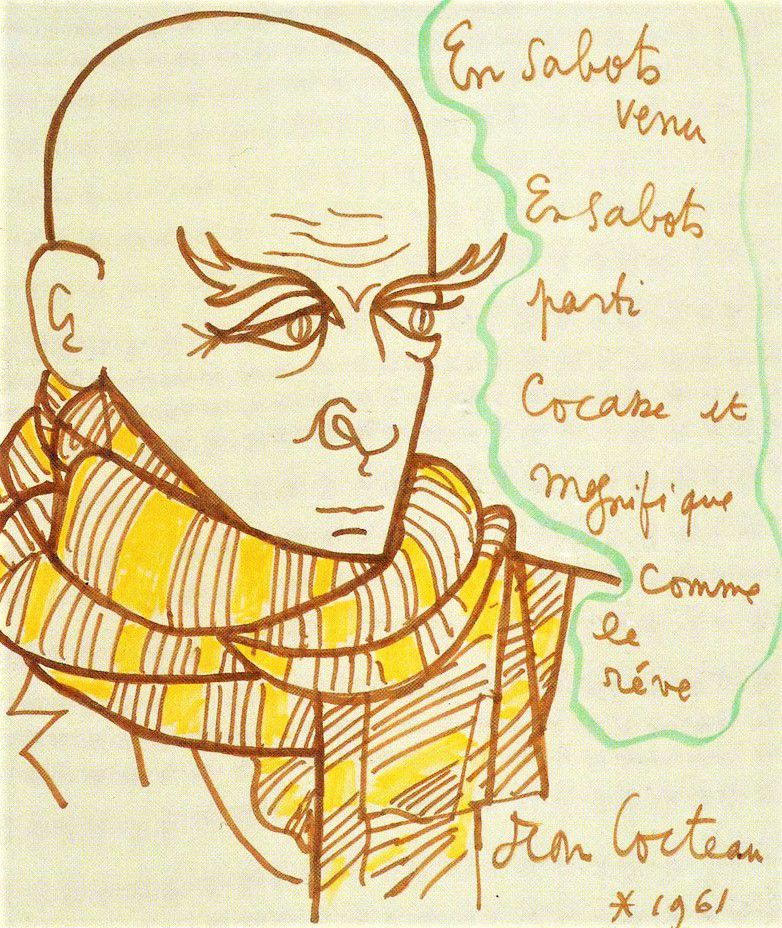 En sabots
venu
En sabots
parti
Cocasse et
magnifique
comme
le
rêve
Jean Cocteau
* 1961